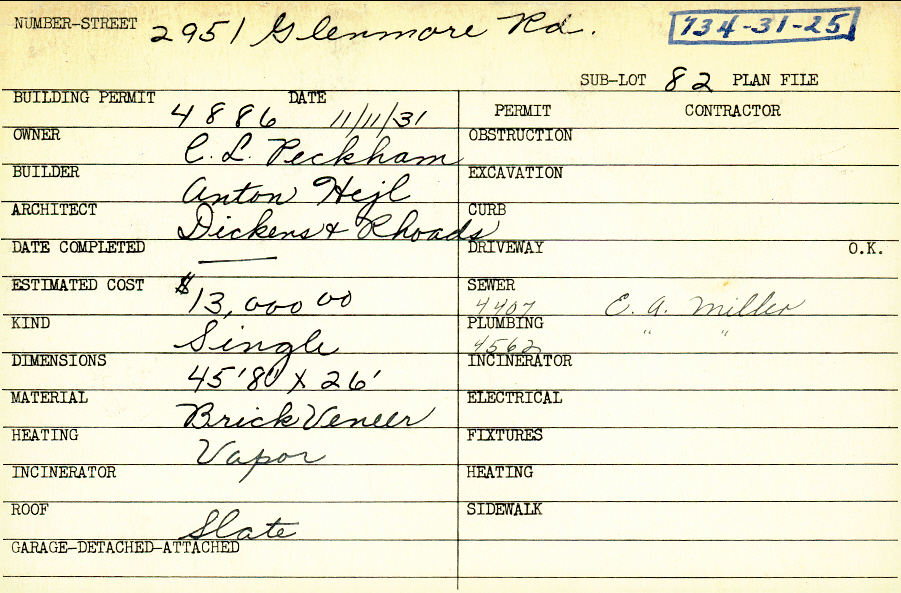 NUMBER-STREET 2951 Glenmore Rd. 734-31-25
SUB-LOT 82 PLAN FILE
BUILDING PERMIT 4886 DATE 11/11/31
PERMIT CONTRACTOR
OWNER C. L. Peckham
OBSTRUCTION
BUILDER Anton Hejl
EXCAVATION
ARCHITECT Dickens & Rhoads
CURB
DATE COMPLETED —
DRIVEWAY O.K.
ESTIMATED COST $13,000 00
SEWER 4407 E. A. Miller
KIND Single
PLUMBING 4562 " "
DIMENSIONS 45'8" X 26'
INCINERATOR
MATERIAL Brick Veneer
ELECTRICAL
HEATING Vapor
FIXTURES
INCINERATOR
HEATING
ROOF Slate
SIDEWALK
GARAGE-DETACHED-ATTACHED